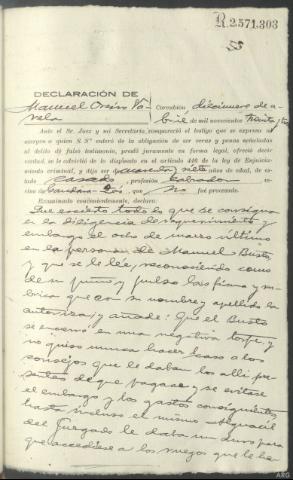 R.2571.303
53
DECLARACIÓN DE
Manuel Oreiro Va-
rela
Corcubión diecinueve de a-
bril de mil novecientos treinta y
Ante el Sr. Juez y mi Secretaría compareció el testigo que se expresa al
margen a quien S. Sª enteró de la obligación de ser veraz y penas señaladas
al delito de falso testimonio, prestó juramento en forma legal, ofreció decir
verdad, se le advirtió de lo dispuesto en el artículo 446 de la ley de Enjuicia-
miento criminal, y dijo ser cuarenta y siete años de edad, de es-
tado casado, profesión labrador
cino de que no fué procesado.
Examinado convenientemente, declara:
Que es cierto todo lo que se consigna
en la diligencia de requerimiento y
embargo del ocho de marzo último
en la persona de Manuel Busto
y que se le lée, reconociendo como
de su puño y pulso la firma y rú-
brica que con su nombre y apellido la
autoriza; y añade: Que el Busto
se encerró en una negativa torpe, y
no quiso nunca hacer caso a los
consejos que le daban los allí pre-
sentes de que pagase y se evitase
el embargo y los gastos consiguientes,
hasta incluso el mismo Alguacil
del Juzgado le daba un duro para
que accediese a los ruegos que le ha-
ARG